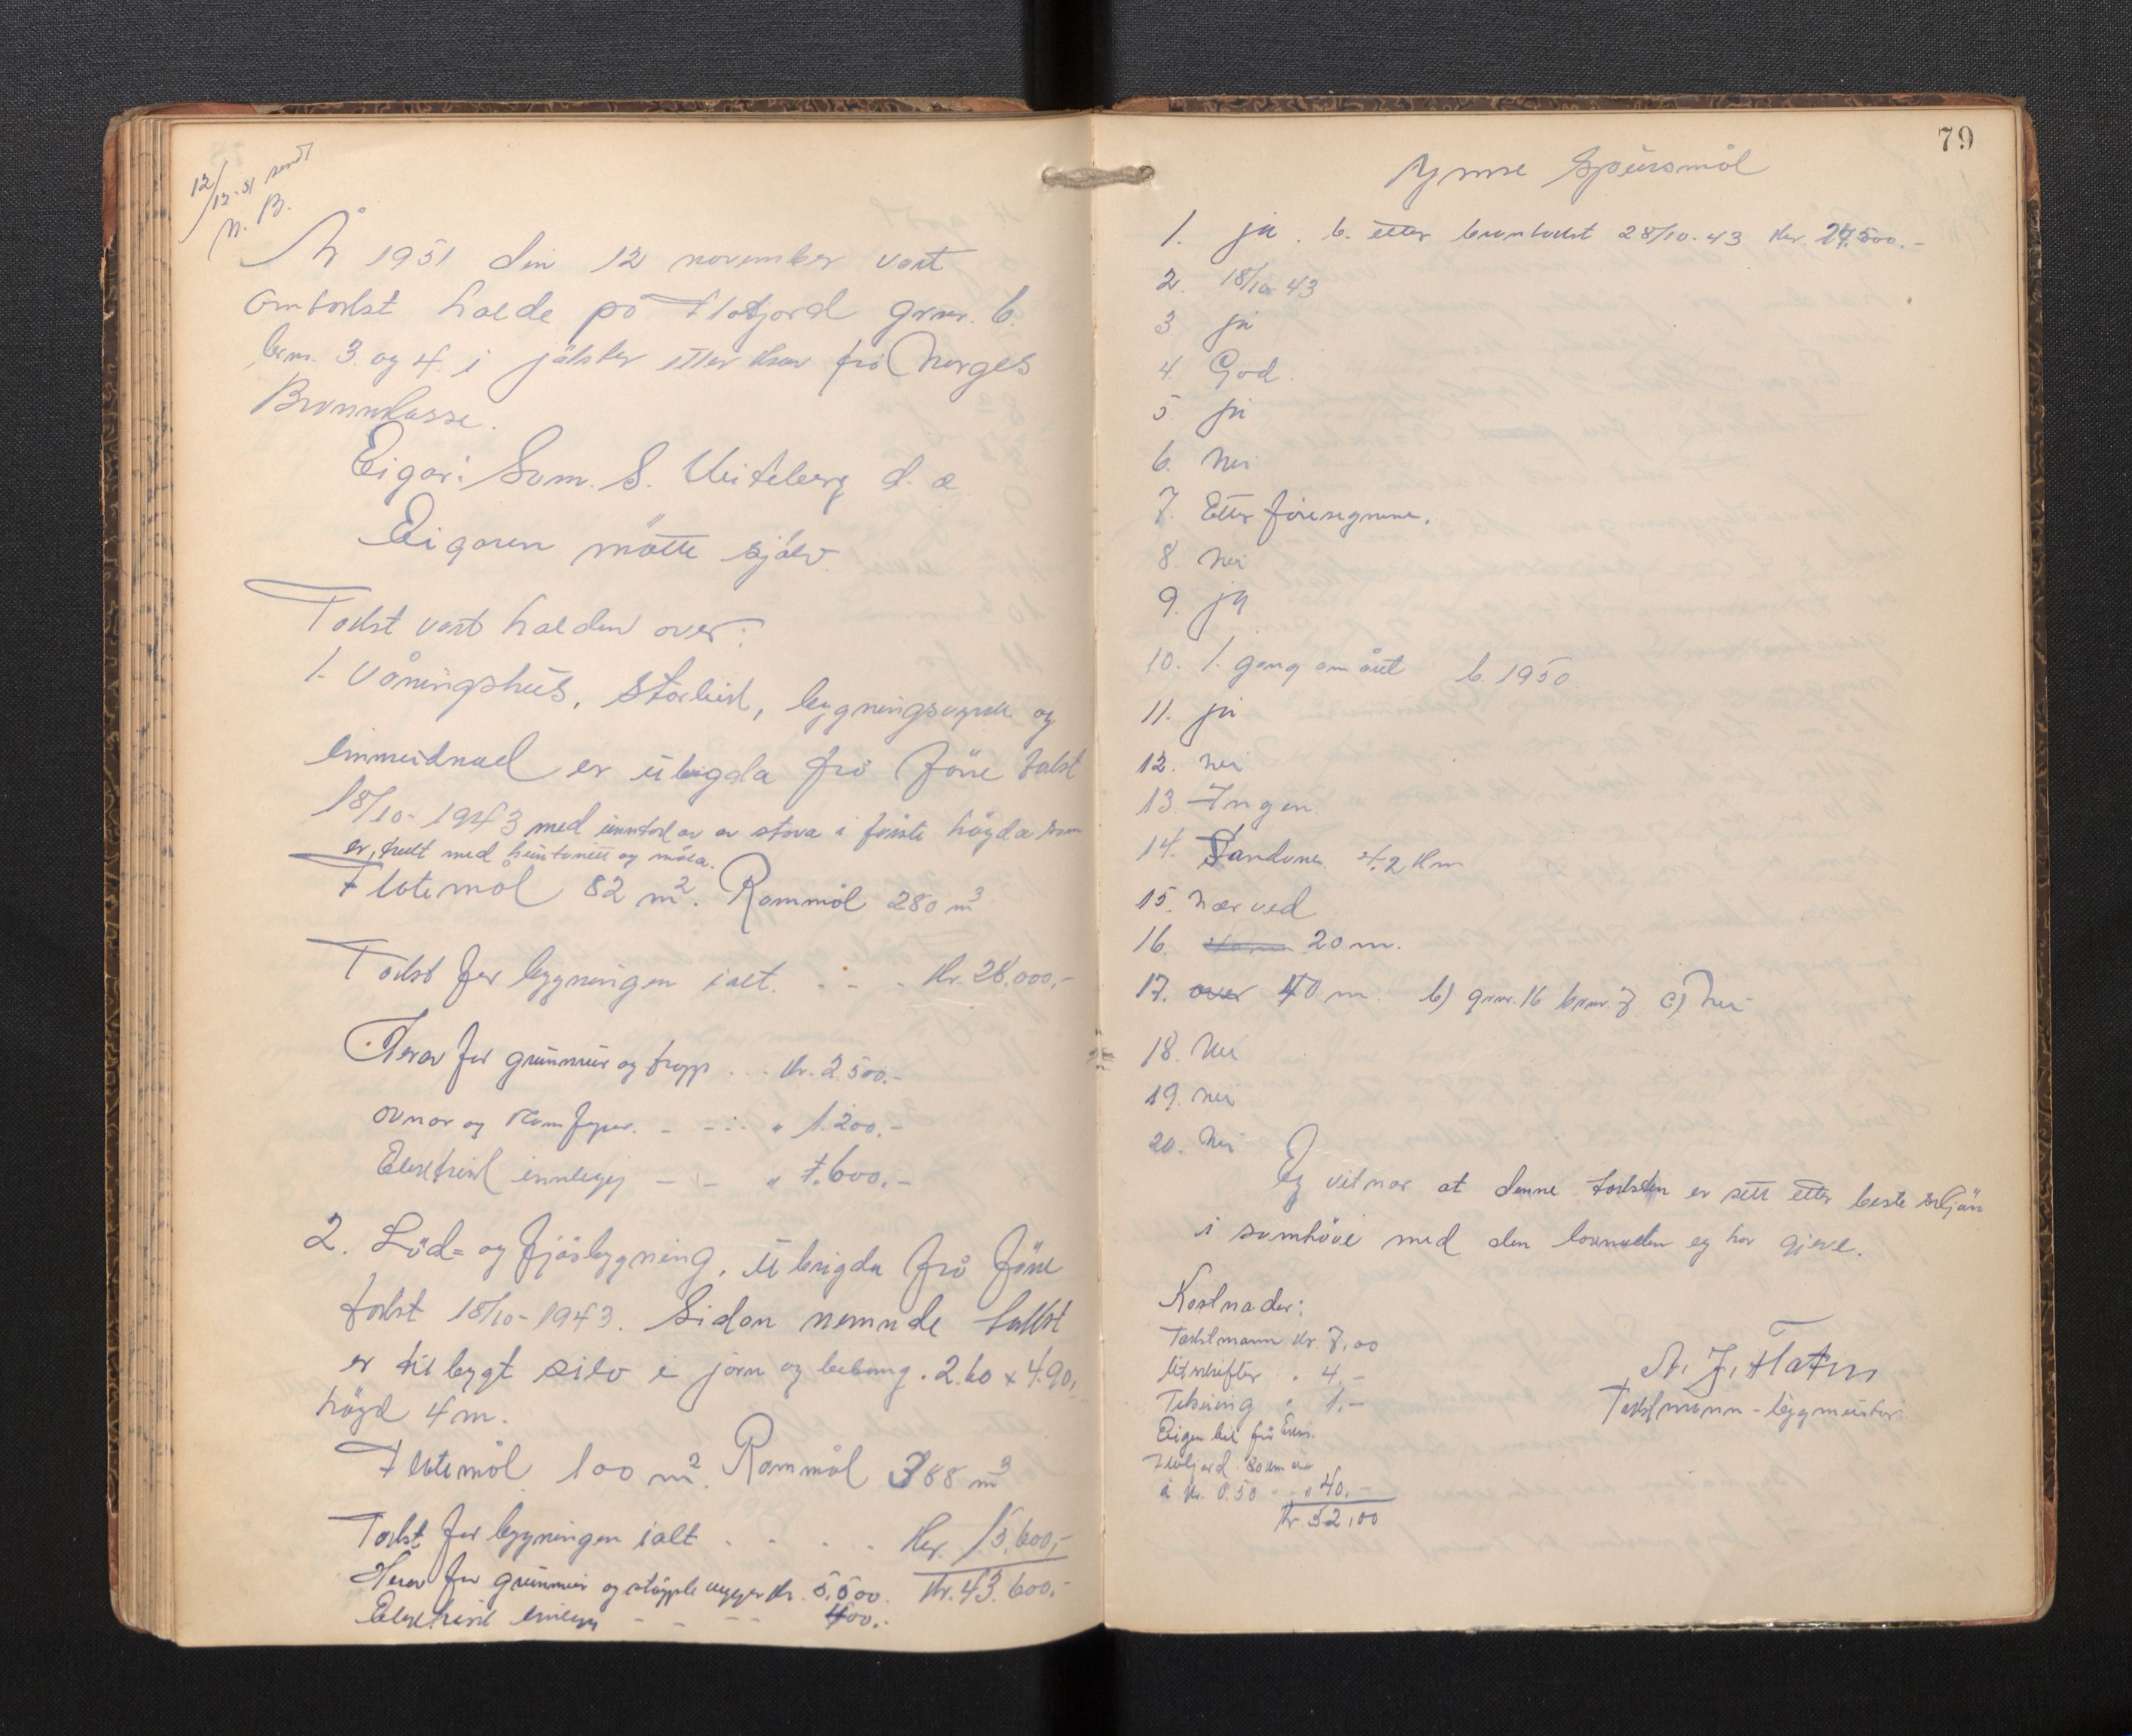 12/12-51 sendt
N. B.
År 1951 den 12 november vart
omtakst halde på Flatjord gnr. 6.
brn. 3. og 4. i jölster etter krav frå Norges
Brannkasse.
Eigar: Sam. S. Veiteberg d. æ.
Eigaren mötte sjölv.
Takst vart halden over:
1. Våningshus, storleik, bygningsmåte og
innreidnad er ubrigda frå före takst
18/10-1943 med unntak av ei stova i fyrste högda som
er, trekt med huntonitt og måla.
Flatemål 82 m². Rommål 280 m³
Takst for bygningen ialt. . . . Kr. 28.000,-
Herav for grunnmur og trapp . . . kr. 2.500.-
ovnar og komfyrer. - - - " 1.200.-
Elektrisk innlegg - - - " 1.600.-
2. Löd= og fjösbygning. Ubrigda frå före
takst 18/10-1943. Sidan nemnde takst
er tilbygt silo i jarn og betong. 2.60 x 4.90,
högd 4 m.
Flatemål 100 m². Rommål 388 m³
Takst for bygningen ialt . . . . Kr. 15.600,-
Herav for grunnmur og stöypte vegger kr. 5.500. Kr. 43.600.-
Elektrisk innlegg - - - - 400.-
79
Ymse Spursmål
1. ja. b. etter branntakst 28/10-43 kr. 24.500.-
2. 18/10-43
3 ja
4. God.
5. ja
6. Nei
7. Etter föresegnene.
8. Nei
9. ja
10. 1. gong om året b. 1950
11. ja
12. nei
13 Ingen.
14. Sandane. 42 km
15. nær ved
16. 20 m.
17. over 40 m. b) gnr. 16 bnr. 7 c) Nei
18. Nei
19. nei
20. Nei
Eg vitnar at denne taksten er sett etter beste skjön
i samhöve med den lovnaden eg har gjeve.
Kostnader:
Takstmann kr. 7,00
Utskrifter " 4,-
Teikning " 1,-
Eigen bil frå
Flatjord 80 km
á kr. 0.50 - " 40.-
Kr. 52,00
A. J. Flaten
Takstmann - bygmeister